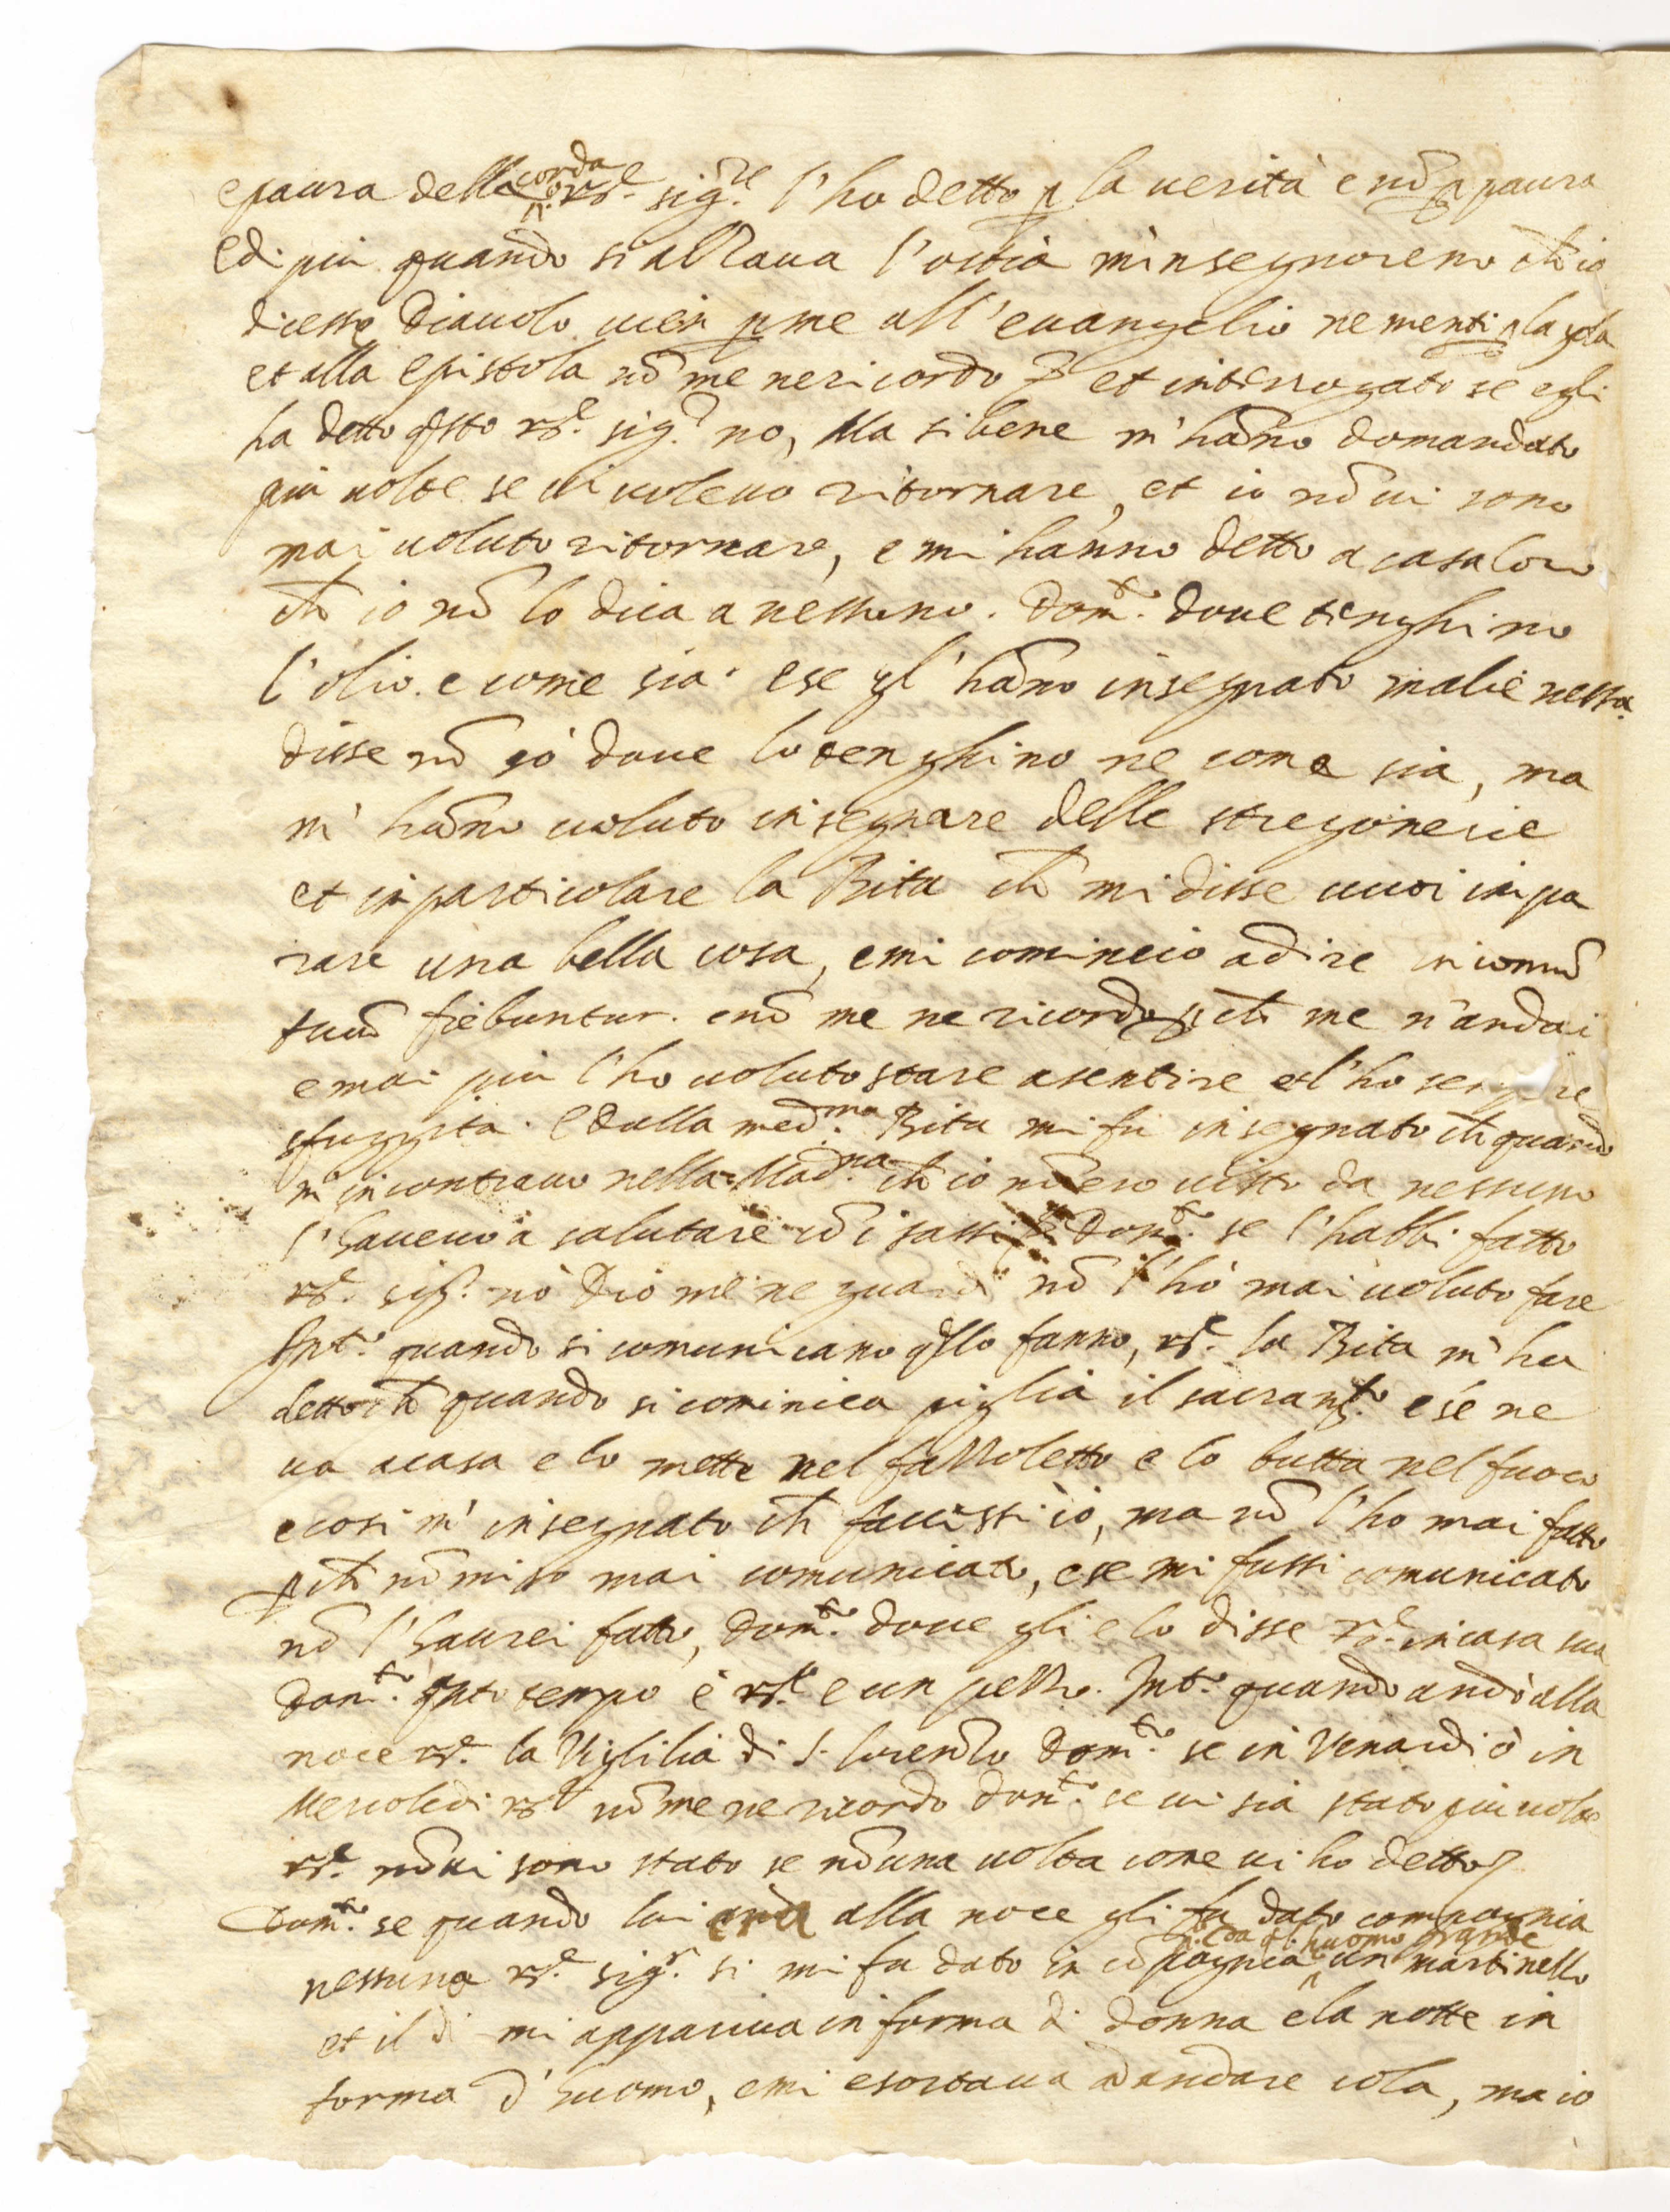 e paura della corda rs.e sig.re l'ho detto p la uerità e nō p paura
e di piu quando si alzaua l'ostia m'insegnoreno ch io
dicesse Diauolo uien p me all'euangelio ne menti p la gola
et alla epistola nō me ne ricordo et interrogato se egli
ha detto qsto rs.e sig.r no, Ma si bene m'hāno domandato
piu uolte se ui uoleuo ritornare, et io nō ui sono
mai uoluto ritornare, e mi hanno detto a casa loro
ch io nō lo dica a nessuno. Dom.to doue tenghino
l'olio e come sia. e se gl'hāno insegnato malie nessa.
disse nō sò doue lo tenghino ne come sia, ma
m'hāno uoluto insegnare delle stregonerie
et in particolare la Bita ch mi disse uuoi inpa
rare una bella cosa, e mi cominciò a dire in
tuū fiebuntur. e nō me ne ricordo p ch me n'andai
e mai piu l'ho uoluto stare a sentire et l'ho sempre
sfuggita. E dalla med.ma Bita mi fu insegnato ch quando
m'incontrauo nella Mad.na ch io nō ero uisto da nessuno
l'haueuo a salutare cō i sassi Dom.to se l'habbi fatto
rs.e sig.r nò Dio me ne guardi nō l'hò mai uoluto fare
Int.o quando si comunicano qllo fanno, rs.e la Bita m'ha
detto ch quando si cominica piglia il sacram.to e se ne
ua a casa e lo mette nel fazzoletto e lo butta nel fuoco
e cosi m'insegnato ch facessi io, ma nō l'ho mai fatto
p ch nō mi so mai comunicato, e se mi fussi comunicato
nō l'haurei fatto, Dom.to doue gli e lo disse rs.e in casa sua
Dom.to qnto tempo è rs.e e un pezzo. Int.o quando andò alla
noce rs.e la Viglilia di S. Lorenzo Dom.to se in Venardi ò in
Mercoledi rs.e nō me ne ricordo Dom.to se ui sia stato piu uolte
rs.e nō ui sono stato se nō una uolta come ui ho detto
Dom.to se quando lui andò alla noce gli fu dato compagnia
nessuna rs.e sig.r si mi fu dato in cōpagnia da ql huomo grande un martinello
et il di mi appariua in forma di donna e la notte in
forma d'huomo, e mi esortaua ad andare cola, ma io